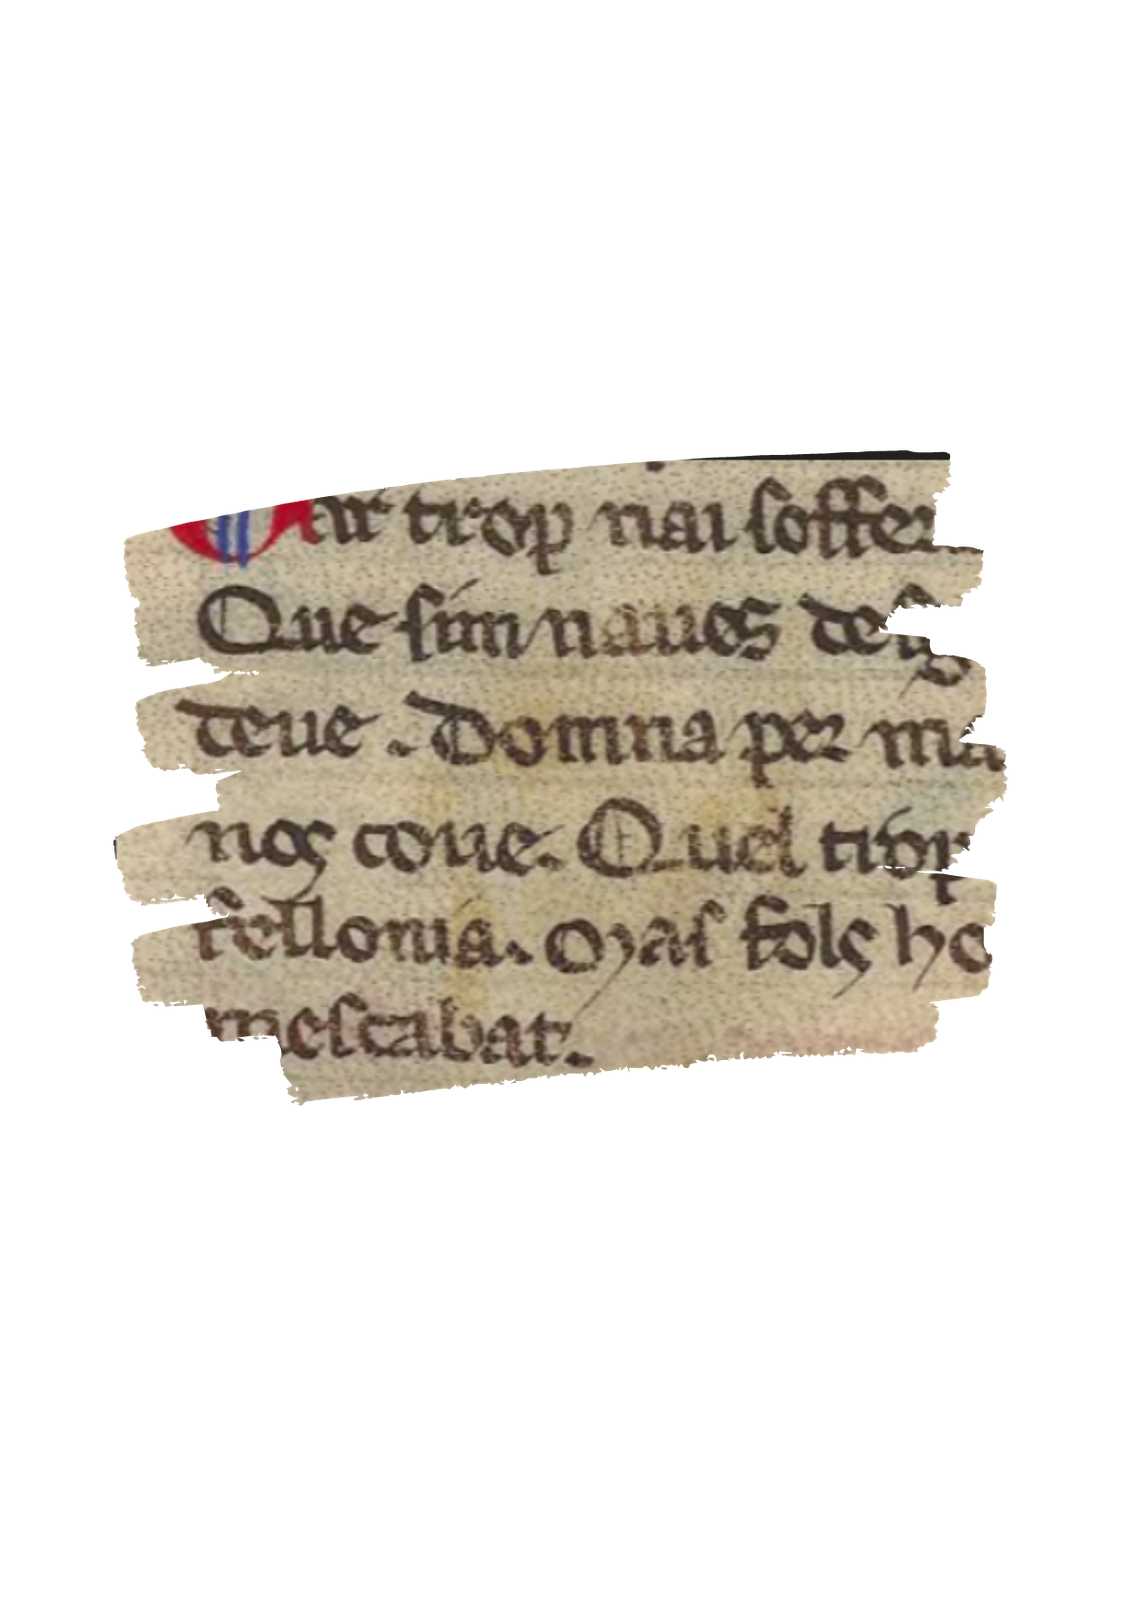 ar trop nai soffer
Que sim naues de
teue . Domna per
nos coue. Quel trop
fellonia. Mas fols ho
mescabar.